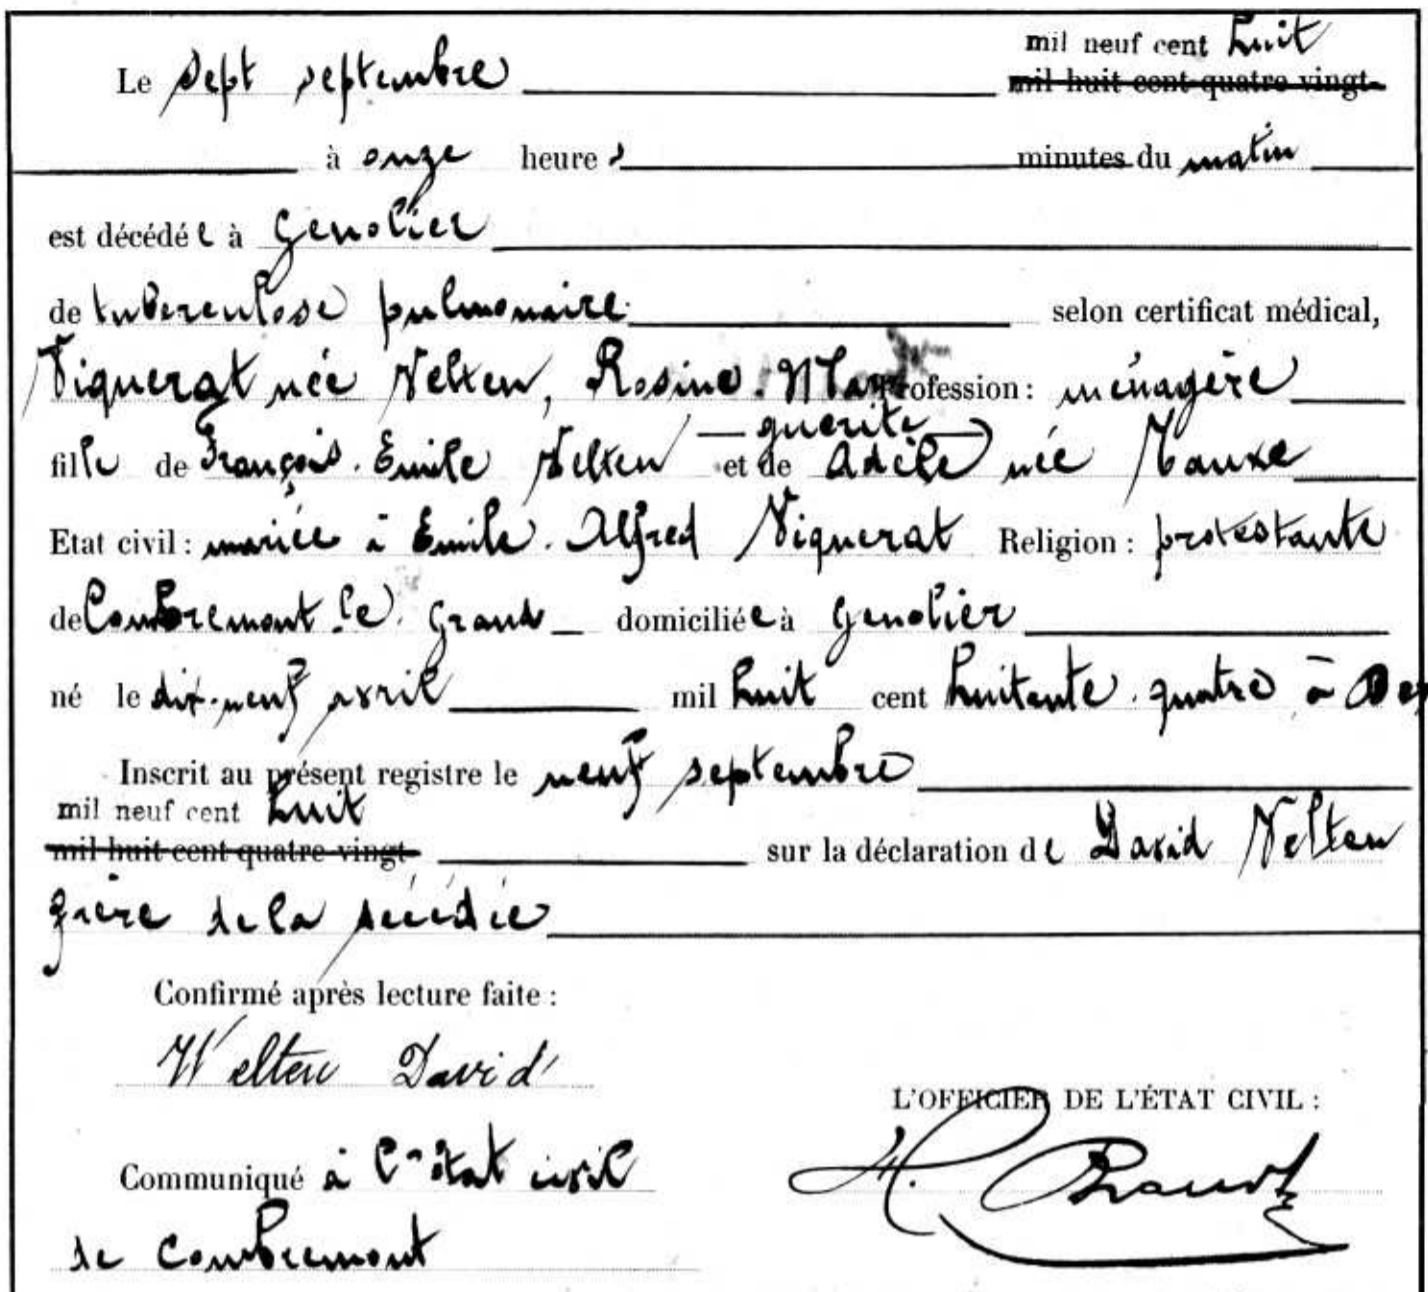 mil neuf cent huit
Le sept septembre mil huit cent quatre-vingt-
à onze heures minutes du matin
est décédée à Genolier
de tuberculose pulmonaire selon certificat médical,
Viguerat née Velten, Rosine-Mar Profession : ménagère
guerite
fille de François-Emile Velten et de Adèle née
Etat civil : mariée à Emile-Alfred Viguerat Religion : protestante
de Combremont-le-Grand domiciliée à Genolier
né le dix-neuf avril mil huit cent huitante-quatre à
Inscrit au présent registre le neuf septembre
mil neuf cent huit
mil huit cent quatre-vingt- sur la déclaration de David Velten
frère de la décédée
Confirmé après lecture faite :
Welten David
L'OFFICIER DE L'ÉTAT CIVIL :
Communiqué à l'état civil
de Combremont